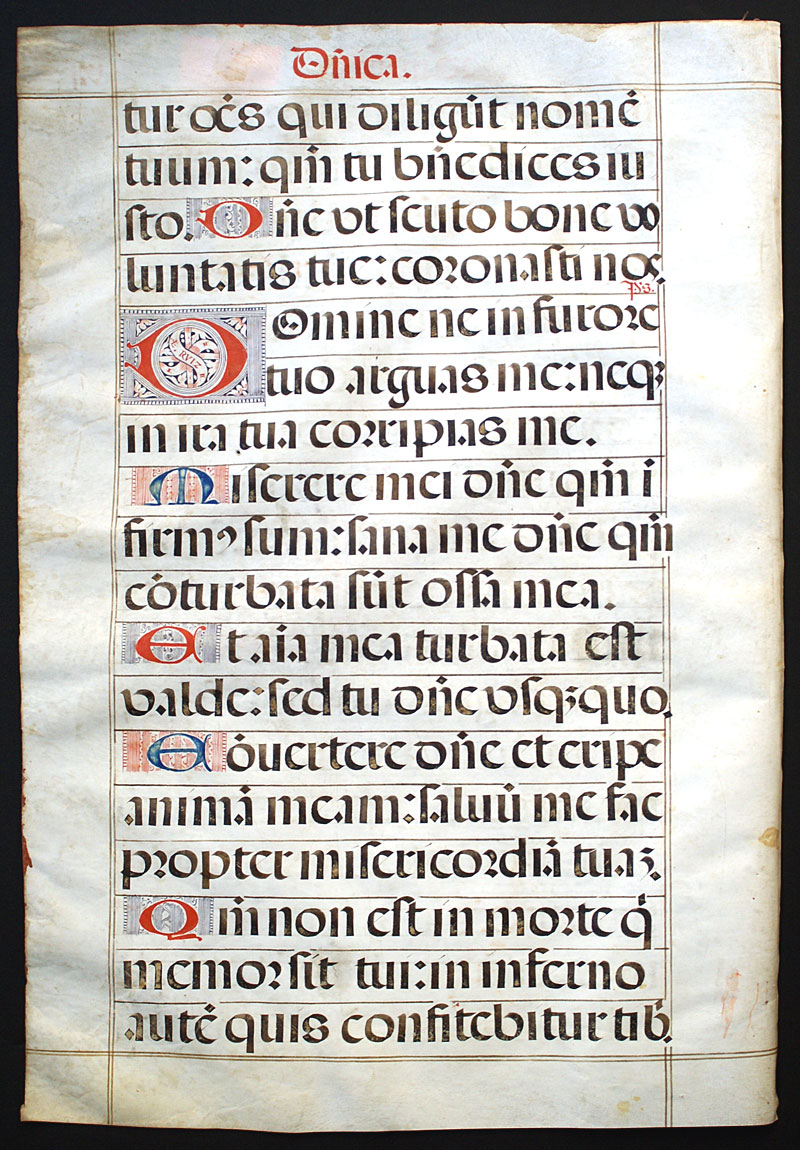 Dñica.
tur oēs qui diligūt nomē
tuum: qm̄ tu bn̄edices iu
sto. Dn̄e vt scuto bone vo
luntatis tue: coronasti nos.
Ps.
Domine ne in furore
tuo arguas me: neqꝫ
in ira tua corripias me.
Miserere mei dn̄e qm̄ ī
firmꝰ sum: sana me dn̄e qm̄
cōturbata sūt ossa mea.
Et aīa mea turbata est
valde: sed tu dn̄e vsqꝫquo.
Cōuertere dn̄e et eripe
animā meam: saluū me fac
propter misericordiā tuaꝫ.
Qm̄ non est in morte q̄
memor sit tui: in inferno
autē quis confitebitur tib̄.